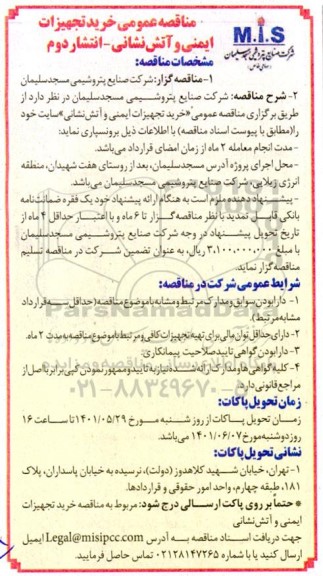 مناقصه عمومی خرید تجهیزات
ایمنی و آتش نشانی - انتشار دوم
M.I.S
شرکت صنایع پتروشیمی مسجدسلیمان
مشخصات مناقصه:
۱- مناقصه گزار: شرکت صنایع پتروشیمی مسجدسلیمان
۲- شرح مناقصه: شرکت صنایع پتروشیمی مسجدسلیمان در نظر دارد از
طریق برگزاری مناقصه عمومی «خرید تجهیزات ایمنی و آتش نشانی» سایت خود
را (مطابق با پیوست اسناد مناقصه) با اطلاعات ذیل برونسپاری نماید:
- مدت انجام معامله ۲ ماه از زمان امضای قرارداد می‌باشد.
- محل اجرای پروژه آدرس مسجدسلیمان، بعد از روستای هفت شهیدان، منطقه
انرژی زیلایی، شرکت صنایع پتروشیمی مسجدسلیمان می‌باشد.
- پیشنهاد دهنده ملزم است به هنگام ارائه پیشنهاد خود یک فقره ضمانت‌نامه
بانکی قابل تمدید با نظر مناقصه گزار تا ۶ ماه و با اعتبار حداقل ۴ ماه از
تاریخ تحویل پیشنهاد در وجه شرکت صنایع پتروشیمی مسجدسلیمان
با مبلغ ۳،۱۰۰،۰۰۰،۰۰۰ ریال، به عنوان تضمین شرکت در مناقصه تسلیم
مناقصه گزار نماید.
شرایط عمومی شرکت در مناقصه:
۱- دارا بودن سوابق و مدارک مرتبط و مشابه با موضوع مناقصه (حداقل سه قرارداد
مشابه مرتبط).
۲- دارای حداقل توان مالی برای تهیه تجهیزات کافی و مرتبط با موضوع مناقصه به مدت ۲ ماه.
۳- دارا بودن گواهی تایید صلاحیت پیمانکاری.
۴- کلیه گواهی ها و مدارک ارائه شده نیاز به تایید و ممهور نمودن کپی برابر با اصل از
مراجع قانونی دارد.
زمان تحویل پاکات:
زمان تحویل پاکات از روز شنبه مورخ ۱۴۰۱/۰۵/۲۹ تا ساعت ۱۶
روز دوشنبه مورخ ۱۴۰۱/۰۶/۰۷ می‌باشد.
نشانی تحویل پاکات:
۱- تهران، خیابان شهید کلاهدوز (دولت)، نرسیده به خیابان پاسداران، پلاک
۱۸۱، طبقه چهارم، واحد امور حقوقی و قراردادها.
* حتماً بر روی پاکت ارسالی درج شود: مربوط به مناقصه خرید تجهیزات
ایمنی و آتش نشانی
جهت دریافت اسناد مناقصه به آدرس Legal@misipcc.com ایمیل
ارسال کنید یا با شماره ۰۲۱۲۸۱۴۷۲۶۵ تماس حاصل فرمایید.
ParsNamadData
۰۲۱-۸۸۳۴۹۶۷۰-۵